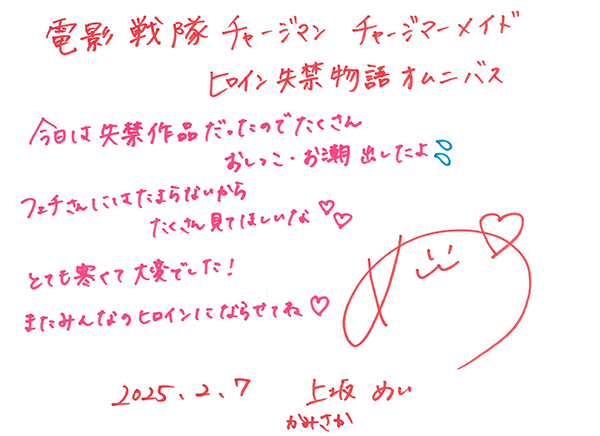 電影戦隊チャージマン チャージマーメイド
ヒロイン失禁物語オムニバス
今日は失禁作品だったのでたくさん
おしっこ・お潮出したよ
フェチさんにはたまらないから
たくさん見てほしいな♡♡
とても寒くて大変でした!
またみんなのヒロインにならせてね♡
2025.2.7 上坂めい
かみさか